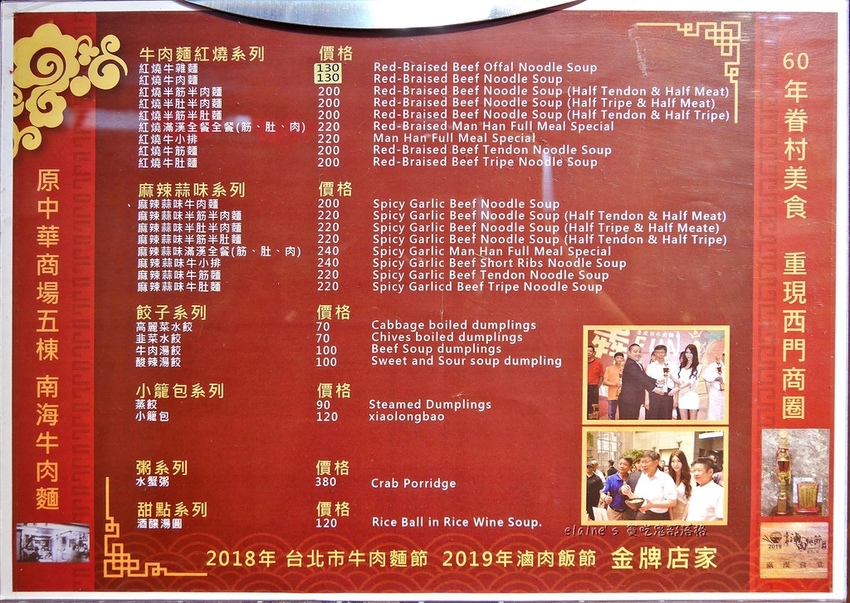 牛肉麵紅燒系列 價格
紅燒牛雜麵 130 Red-Braised Beef Offal Noodle Soup
紅燒牛肉麵 130 Red-Braised Beef Noodle Soup
紅燒半筋半肉麵 200 Red-Braised Beef Noodle Soup (Half Tendon & Half Meat)
紅燒半肚半肉麵 200 Red-Braised Beef Noodle Soup (Half Tripe & Half Meat)
紅燒半筋半肚麵 200 Red-Braised Beef Noodle Soup (Half Tendon & Half Tripe)
紅燒滿漢全餐全餐(筋、肚、肉) 220 Red-Braised Man Han Full Meal Special
紅燒牛小排 220 Man Han Full Meal Special
紅燒牛筋麵 200 Red-Braised Beef Tendon Noodle Soup
紅燒牛肚麵 200 Red-Braised Beef Tripe Noodle Soup
麻辣蒜味系列 價格
麻辣蒜味牛肉麵 200 Spicy Garlic Beef Noodle Soup
麻辣蒜味半筋半肉麵 220 Spicy Garlic Beef Noodle Soup (Half Tendon & Half Meat)
麻辣蒜味半肚半肉麵 220 Spicy Garlic Beef Noodle Soup (Half Tripe & Half Meate)
麻辣蒜味半筋半肚麵 220 Spicy Garlic Beef Noodle Soup (Half Tendon & Half Tripe)
麻辣蒜味滿漢全餐(筋、肚、肉) 240 Spicy Garlic Man Han Full Meal Special
麻辣蒜味牛小排 240 Spicy Garlic Beef Short Ribs Noodle Soup
麻辣蒜味牛筋麵 220 Spicy Garlic Beef Tendon Noodle Soup
麻辣蒜味牛肚麵 220 Spicy Garlicd Beef Tripe Noodle Soup
餃子系列 價格
高麗菜水餃 70 Cabbage boiled dumplings
韭菜水餃 70 Chives boiled dumplings
牛肉湯餃 100 Beef Soup dumplings
酸辣湯餃 100 Sweet and Sour soup dumpling
小籠包系列 價格
蒸餃 90 Steamed Dumplings
小籠包 120 xiaolongbao
粥系列 價格
水蟹粥 380 Crab Porridge
甜點系列 價格
酒釀湯圓 120 Rice Ball in Rice Wine Soup.
2018年 台北市牛肉麵節 2019年滷肉飯節 金牌店家
原中華商場五棟 南海牛肉麵
60年眷村美食 重現西門商圈
elaine's 貪吃鬼部落格